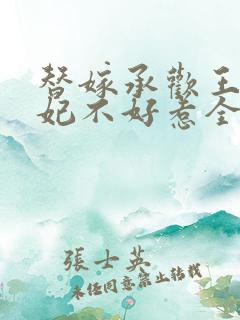 替嫁承歡王
妃不好惹全
張士英
未经同意禁止转载